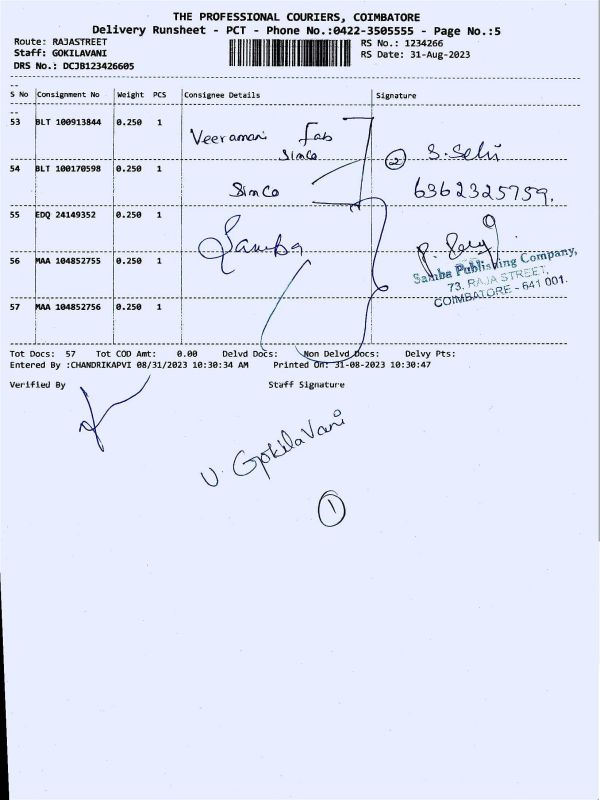 THE PROFESSIONAL COURIERS, COIMBATORE
Delivery Runsheet - PCT - Phone No.:0422-3505555 - Page No.:5
Route: RAJASTREET
RS No.: 1234266
Staff: GOKILAVANI
RS Date: 31-Aug-2023
DRS No.: DCJB123426605
S No Consignment No Weight PCS Consignee Details Signature
53 BLT 100913844 0.250 1 Veeramani Fab
Simco
2 S. Selvi
54 BLT 100170598 0.250 1 Simco 6362325759.
55 EDQ 24149352 0.250 1 Samba
56 MAA 104852755 0.250 1
Samba Publishing Company,
73, RAJA STREET,
COIMBATORE - 641 001.
57 MAA 104852756 0.250 1
Tot Docs: 57 Tot COD Amt: 0.00 Delvd Docs: Non Delvd Docs: Delvy Pts:
Entered By :CHANDRIKAPVI 08/31/2023 10:30:34 AM Printed On: 31-08-2023 10:30:47
Verified By Staff Signature
U. GokilaVani
1